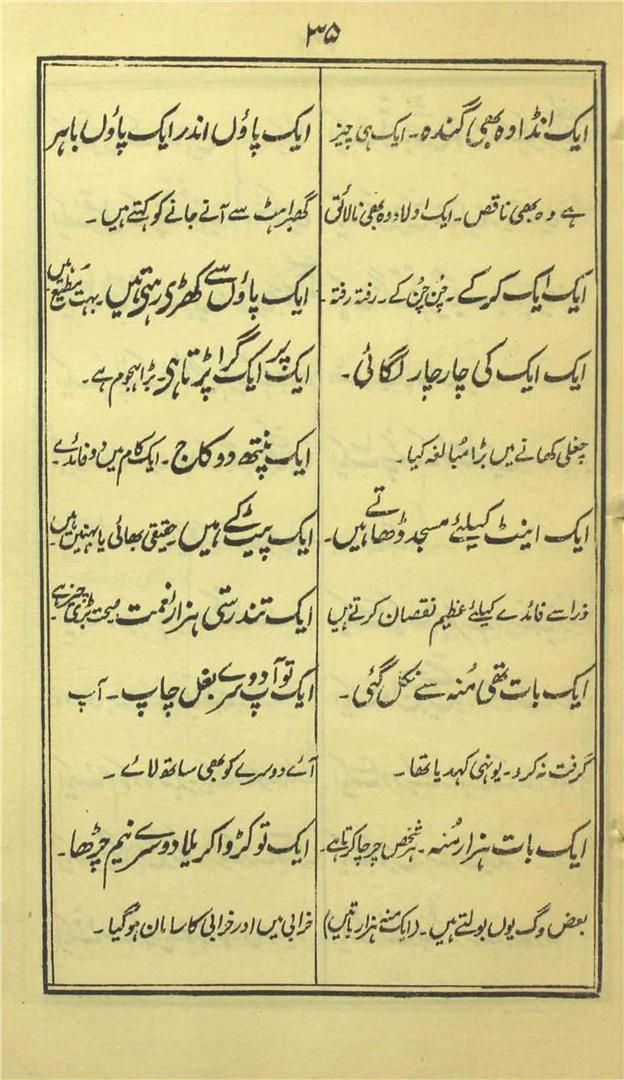 ۳۵
ایک انڈا وہ بھی گندہ۔ ایک ہی چیز
ہے وہ بھی ناقص۔ ایک اولاد وہ بھی نالائق
ایک ایک کرکے۔ چُن چُن کے۔ رفتہ رفتہ۔
ایک ایک کی چار چار لگائی۔
چغلی کھانے میں بڑا مُبالغہ کیا۔
ایک اینٹ کیلئے مسجد ڈھاتے ہیں۔
ذرا سے فائدے کیلئے عظیم نقصان کرتے ہیں
ایک بات تھی مُنہ سے نکل گئی۔
گرفت نہ کرو۔ یونہی کہدیا تھا۔
ایک بات ہزار مُنہ۔ ہر شخص چرچا کرتا ہے۔
بعض وگ یوں بولتے ہیں۔ (ایک منہ ہزار باتیں)
ایک پاؤں اندر ایک پاؤں باہر
گھبراہٹ سے آنے جانے کو کہتے ہیں۔
ایک پاؤں سے کھڑی رہتی ہیں بہت مطیع ہیں
ایک پر ایک گرا پڑتا ہی۔ بڑا ہجوم ہے۔
ایک پنتھ دو کاج۔ ایک کام میں دو فائدے۔
ایک پیٹ کے ہیں حقیقی بھائی یا بہنیں ہیں۔
ایک تندرستی ہزار نعمت صحت بڑی چیز ہے۔
ایک تو آپ دوسرے بغل چاپ۔ آپ
آئے دوسرے کو بھی ساتھ لائے۔
ایک تو کڑوا کریلا دوسرے نیم چڑھا۔
خرابی میں اور خرابی کا سامان ہوگیا۔